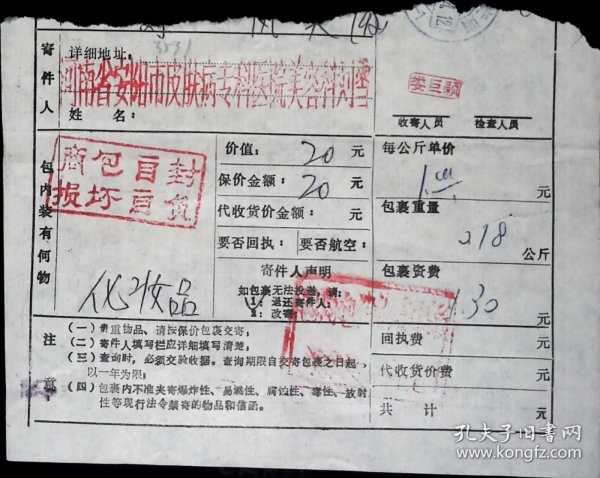 寄件人
详细地址：
3231
河南省安阳市皮肤病专科医院美容科刘雪
姓名：
娄巨颖
收寄人员
检查人员
包内装有何物
商包自封
损坏自负
化妆品
价值： 20 元
保价金额： 20 元
代收货价金额： 元
要否回执： 要否航空：
寄件人声明
如包裹无法投递，请：
1：退还寄件人；
2：改寄
每公斤单价
元
包裹重量
2.18
公斤
包裹资费
1.30
元
回执费 元
代收货价费 元
共计 元
注意：
（一）贵重物品、请按保价包裹交寄；
（二）寄件人填写栏应详细填写清楚；
（三）查询时，必须交验收据。查询期限自交寄包裹之日起，
以一年为限；
（四）包裹内不准夹寄爆炸性、易燃性、腐蚀性、毒性、放射
性等现行法令禁寄的物品和信函。
孔夫子旧书网
www.kongfz.com